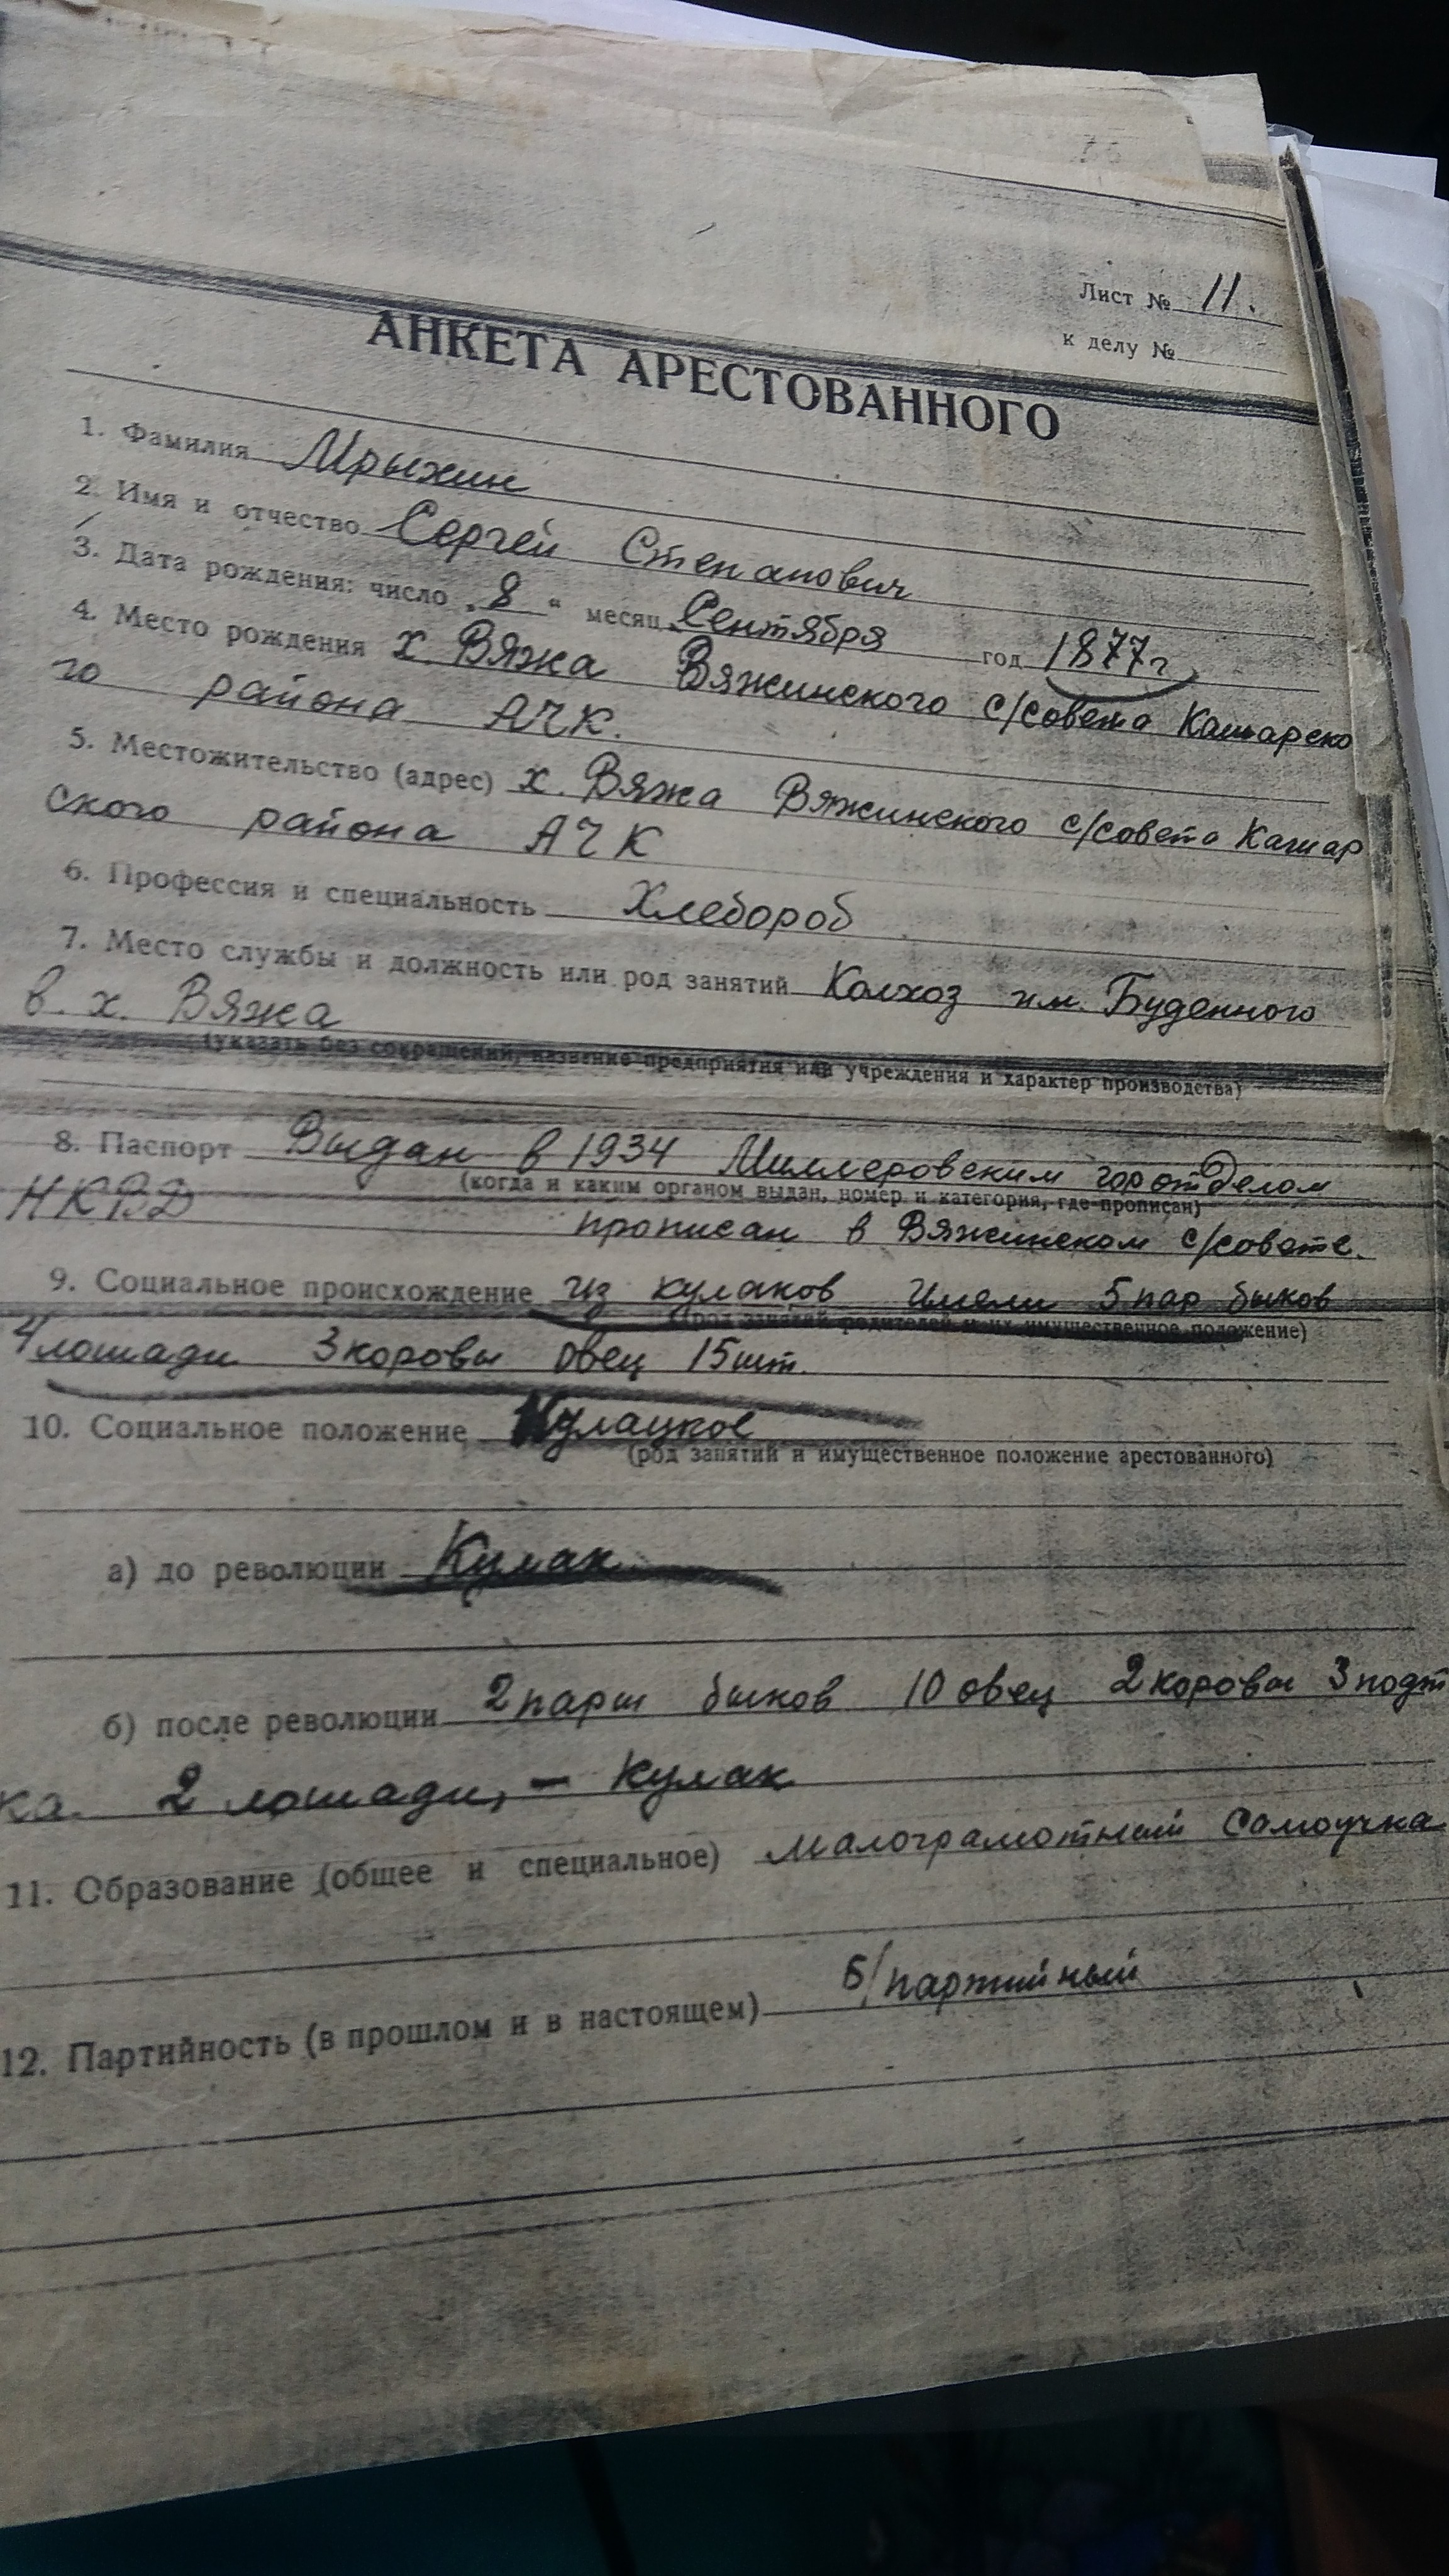 Лист № 11.
к делу №
АНКЕТА АРЕСТОВАННОГО
1. Фамилия Мрыхин
2. Имя и отчество Сергей Степанович
3. Дата рождения: число „8“ месяц Сентября год 1877г
4. Место рождения х. Вяжа Вяжинского с/совета Кашарско
го района АЧК.
5. Местожительство (адрес) х. Вяжа Вяжинского с/совета Кашар
ского района АЧК
6. Профессия и специальность Хлебороб
7. Место службы и должность или род занятий Колхоз им. Буденного
в х. Вяжа
(указать без сокращений, название предприятия или учреждения и характер производства)
8. Паспорт Выдан в 1934 Миллеровским горотделом
(когда и каким органом выдан, номер и категория, где прописан)
НКВД прописан в Вяжинском с/совете.
9. Социальное происхождение из кулаков Имели 5 пар быков
(род занятий родителей и их имущественное положение)
4 лошади 3 коровы овец 15 шт.
10. Социальное положение Кулацкое
(род занятий и имущественное положение арестованного)
а) до революции Кулак
б) после революции 2 пары быков 10 овец 2 коровы 3 подт
ка. 2 лошади, – кулак
11. Образование (общее и специальное) малограмотный самоучка
12. Партийность (в прошлом и в настоящем) б/партийный